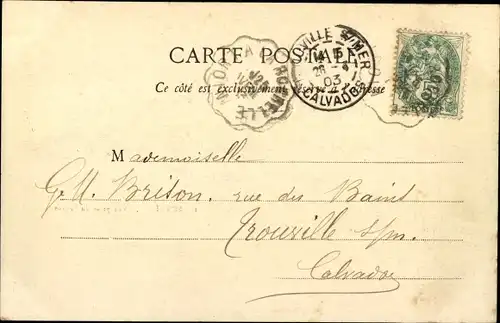 CARTE POSTALE
Ce côté est exclusivement réservé à l'adresse
VILLE S/MER
28
03
CALVADOS
Mademoiselle
G. M. Brison. rue des Bains
Trouville s/m.
Calvados